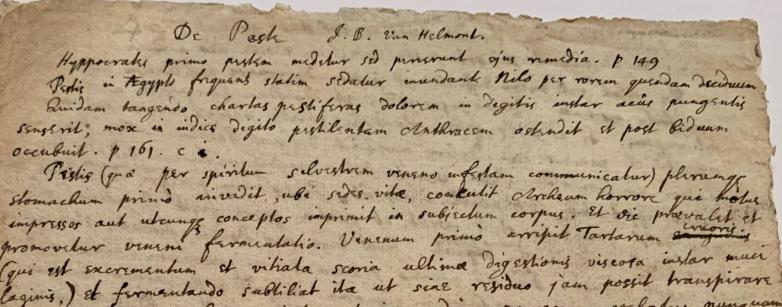 De Peste J. B. Van Helmont.
Hyppocrates primo pestem medetur sed perierunt ejus remedia. p 149
Pestis in Ægypto frequens statim sedatur inundante Nilo per rorem quendam deciduum
Quidam tangendo chartas pestiferas dolorem in digitis instar acûs pungentis
senserit; mox in indice digito pestilentem Anthracem ostendit et post biduum
occubuit. p 161. c i.
Pestis (quæ per spiritum silvestrem veneno infestam communicatur) plerumqȝ
stomachum primò invedit, ubi sedes vitæ, concutit Archeum horrore qui motus
impressos aut utcunqȝ conceptos imprimit in subjectum corpus. Et sic prævalet et
promovetur veneni fermentatio. Venenum primò arripit Tartarum cruoris
(qui est excrementum et vitiata scoria ultimæ digestionis viscosa instar muci
laginis,) et fermentando subtiliat ita ut sine residuo jam possit transpirare